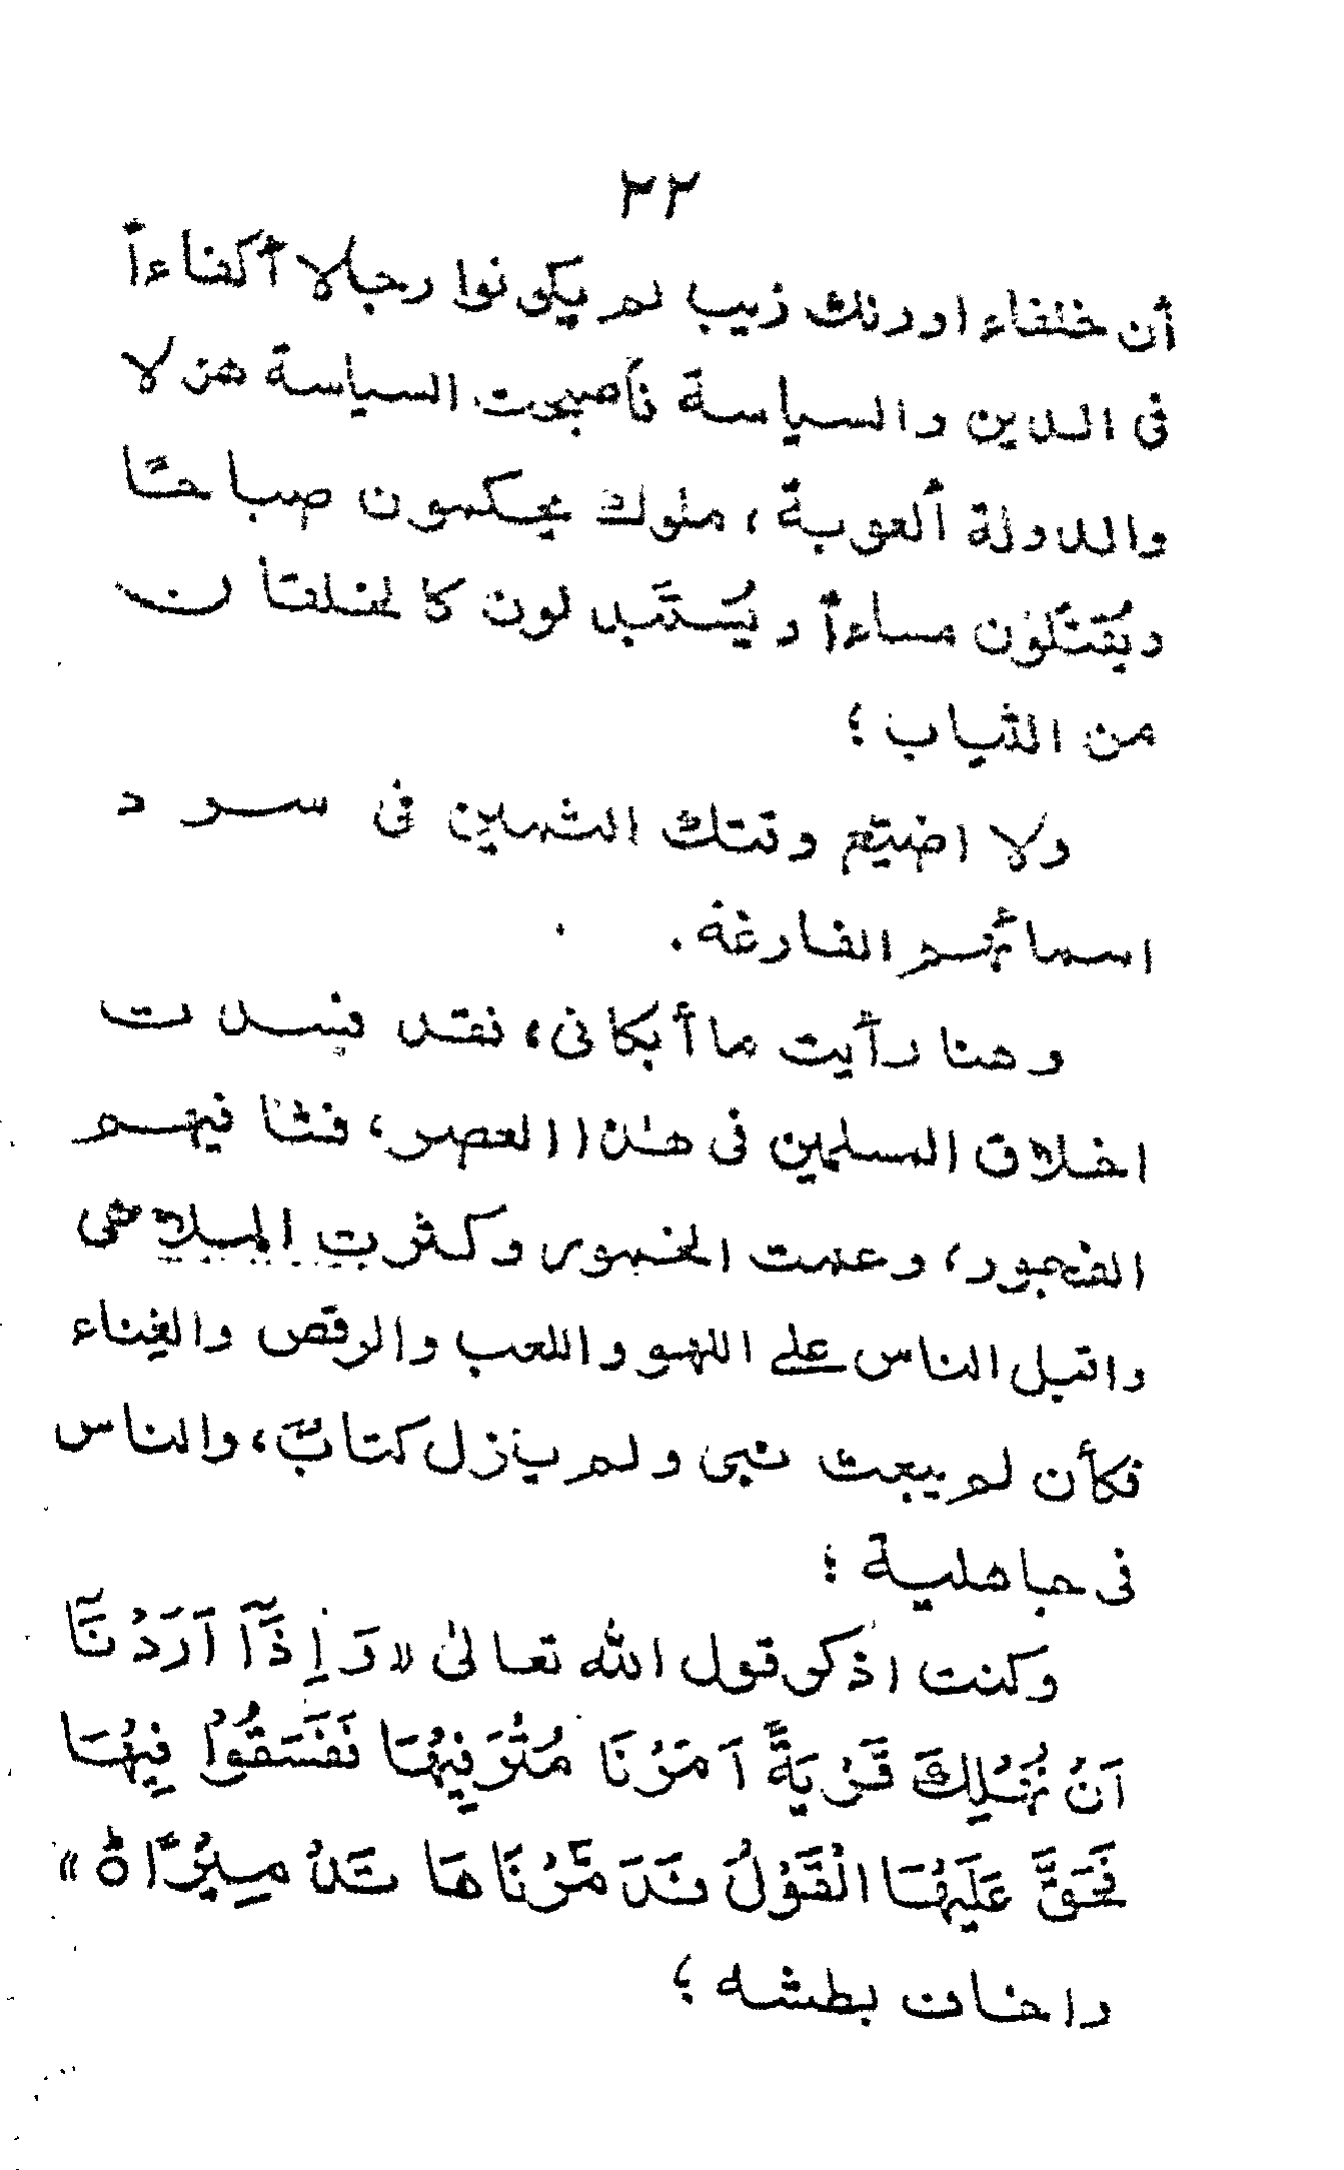 ٢٢
أن خلفاء اورنك زيب لم يكونوا رجلا أكفاءاً
فى الدين والسياسة فأصبحت السياسة هزلا
والدولة ألعوبة، ملوك يحكمون صباحًا
ويُقتَّلون مساءاً ويُستَبدلون كالخلقان
من الثياب؛
ولا اضيّع وقتك الثمين فى سرد
اسمائهم الفارغة.
وهنا رأيت ما أبكانى، فقد فسدت
اخلاق المسلمين فى هٰذا العصر، فشا فيهم
الفجور، وعمت الخمور وكثرت الملاهى
واقبل الناس على اللهو واللعب والرقص والغناء
فكأن لم يبعث نبى ولم ينزل كتابٌ، والناس
فى جاهلية؛
وكنت اذكر قول الله تعالىٰ «وَاِذَآ اَرَدْنَآ
اَنْ نُهْلِكَ قَرْيَةً اَمَرْنَا مُتْرَفِيْهَا فَفَسَقُوْا فِيْهَا
فَحَقَّ عَلَيْهَا الْقَوْلُ فَدَمَّرْنَاهَا تَدْمِيْرًا ۵»
واخاف بطشه؛